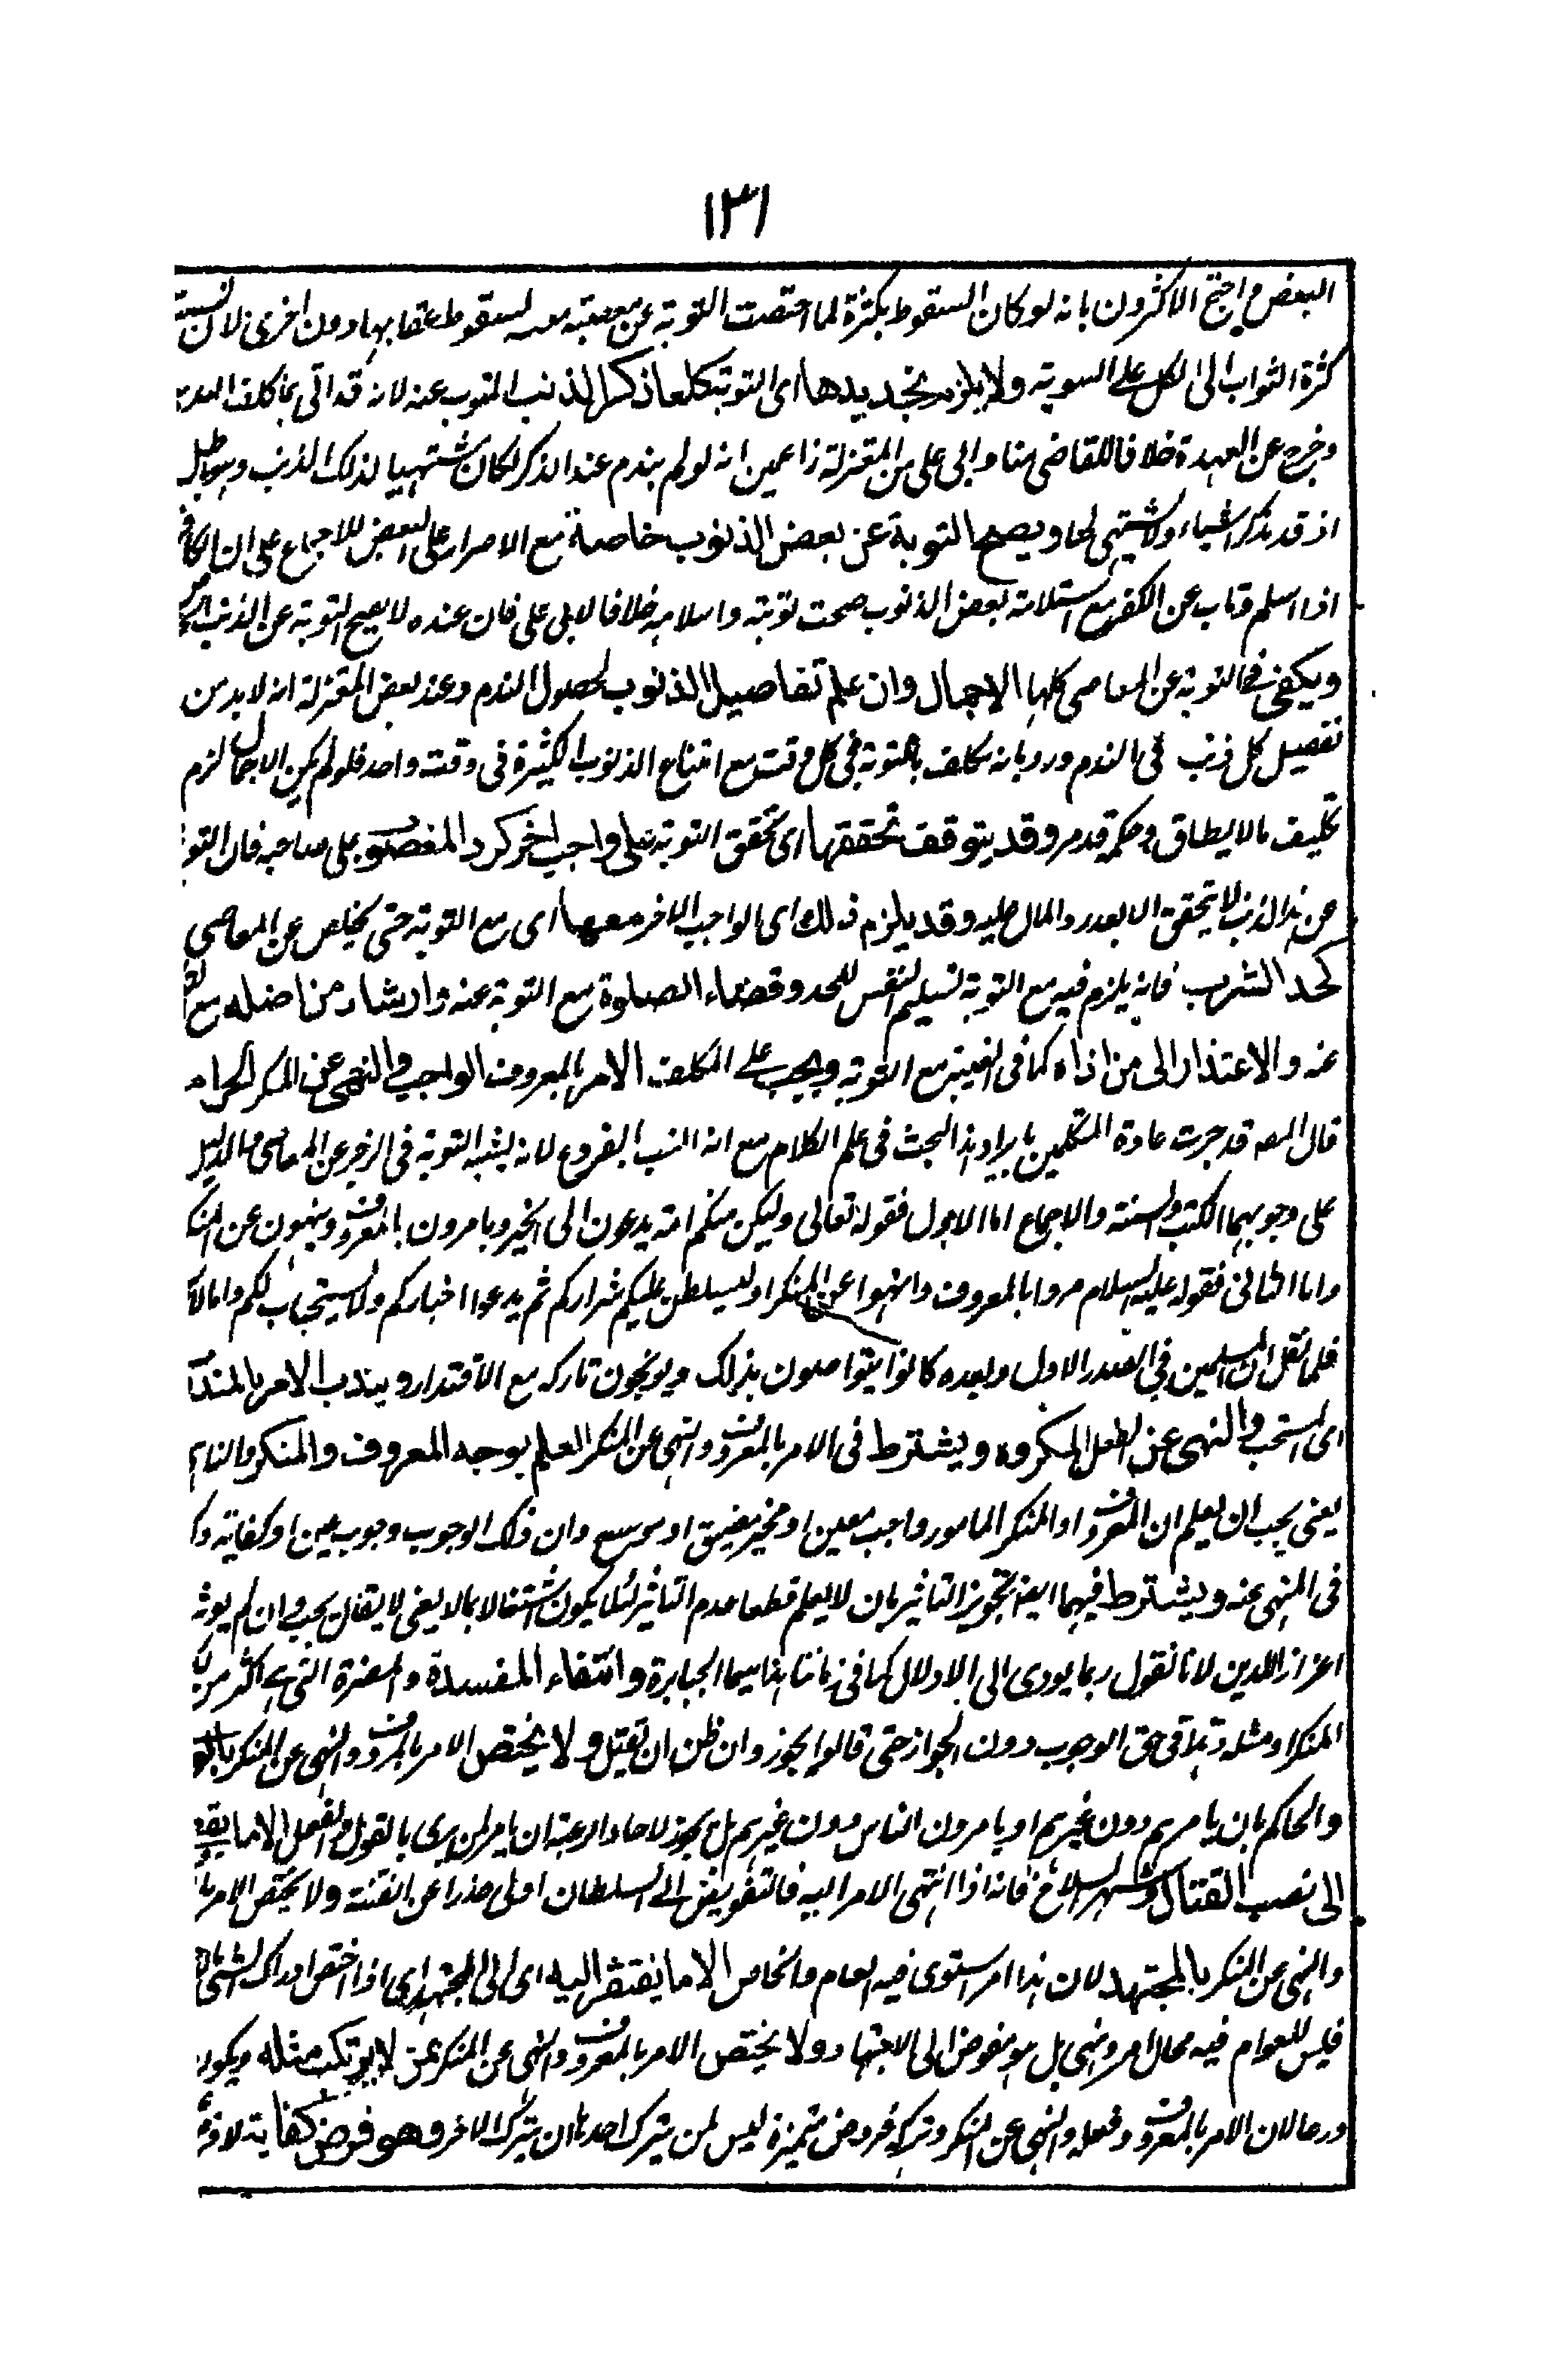 ١٣١
البعض واحتج الاكثرون بانه لو كان السقوط بكثرة لما اختصت التوبة عن معصية معينة لسقوط عقابها دون اخرى لان نسبة
كثرة الثواب الى الكل على السوية ولا يلزم تجديدها اى التوبة كلما ذكر الذنب المتوب عنه لانه قد اتى بما كلف
وخرج عن العهدة خلافا للقاضى منا وابى على من المعتزلة زاعمين انه لو لم يندم عند الذكر لكان مشتهيا لذلك الذنب وهو باطل
اذ قد يذكر شياء ولا يشتهى لها ويصح التوبة عن بعض الذنوب خاصة مع الاصرار على البعض للاجماع على ان الكافر
اذا اسلم وتاب عن الكفر مع استدامة بعض الذنوب صحت توبته واسلامه خلافا لابى على فان عنده لا يصح التوبة عن الذنب
ويكفى فى التوبة عن المعاصى كلها الاجمال وان علم تفاصيل الذنوب لحصول الندم وعند بعض المعتزلة انه لا بد من
تفصيل كل ذنب فى الندم ورد بانه مكلف بالتوبة فى كل وقت مع امتناع الذنوب الكثيرة فى وقت واحد فلو لم يكن الاجمال لزم
تكليف ما لا يطاق وحكمه قد مر وقد يتوقف تحققها اى تحقق التوبة على واجب اخر كرد المغصوب على صاحبه فان التوبة
عن هذا الذنب لا يتحقق الا بعد رد المال عليه وقد يلزم ذلك اى الواجب الاخر معها اى مع التوبة حتى يخلص عن المعاصى
كحد الشرب فانه يلزم فيه مع التوبة تسليم النفس للحد وقضاء الصلوة مع التوبة عنه وارشاد من اضله مع
عنه والاعتذار الى من اذاه كما فى الغيبة مع التوبة ويجب على المكلف الامر بالمعروف الواجب والنهى عن المنكر الحرام
قال المص قد جرت عادة المتكلمين بايراد هذا البحث فى علم الكلام مع انه انسب بالفروع لانه يشبه التوبة فى الزجر عن المعاصى والدليل
على وجوبهما الكتب والسنة والاجماع اما الاول فقوله تعالى وليكن منكم امة يدعون الى الخير ويامرون بالمعروف وينهون عن المنكر
واما الثانى فقوله عليه السلام مروا بالمعروف وانهوا عن المنكر او ليسلطن عليكم شراركم ثم يدعوا اخياركم ولا يستجاب لكم واما
فلما نقل ان المسلمين فى الصدر الاول وبعده كانوا يتواصلون بذلك ويوبخون تاركه مع الاقتدار ويندب الامر بالمندوب
اى المستحب والنهى عن الفعل المكروه ويشترط فى الامر بالمعروف والنهى عن المنكر العلم بوجه المعروف والمنكر
يعنى يجب ان يعلم ان المعروف او المنكر المامور واجب معين او مخير مضيق او موسع وان ذلك الوجوب وجوب عين او كفاية وكذا
فى المنهى عنه ويشترط فيهما ايضا تجويز التاثير بان لا يعلم قطعا عدم التاثير لئلا يكون اشتغالا بما لا يغنى لا يقال يجب وان لم يوثر
اعزازا للدين لانا نقول ربما يودى الى الاذلال كما فى زماننا هذا سيما الجبابرة وانتفاء المفسدة والمضرة التى هى اكثر من
المنكر او مثله وهذا فى حق الوجوب دون الجواز حتى قالوا يجوز وان ظن ان يقتل ولا يختص الامر بالمعروف والنهى عن المنكر
والحاكم بان يامرهم دون غيرهم او يامرون الناس دون غيرهم بل يجوز لاحاد الرعية ان يامر لمن يرى بالقول والفعل الا ما
الى نصب القتال وشهر السلاح فانه اذا انتهى الامر اليه فالتفويض الى السلطان اولى حذرا عن الفتنة ولا يختص الامر
والنهى عن المنكر بالمجتهد لان هذا امر استوى فيه العام والخاص الا ما يفتقر اليه اى الى المجتهد اى اذا اختص
فليس للعوام فيه مجال امر ونهى بل هو مفوض الى الاجتهاد ولا يختص الامر بالمعروف والنهى عن المنكر بمن لا يرتكب مثله ويكون
ورعا لان الامر بالمعروف وفعله والنهى عن المنكر وتركه فروض متميزة ليس لمن يترك احدها ان يترك الاخر وهو فرض كفاية